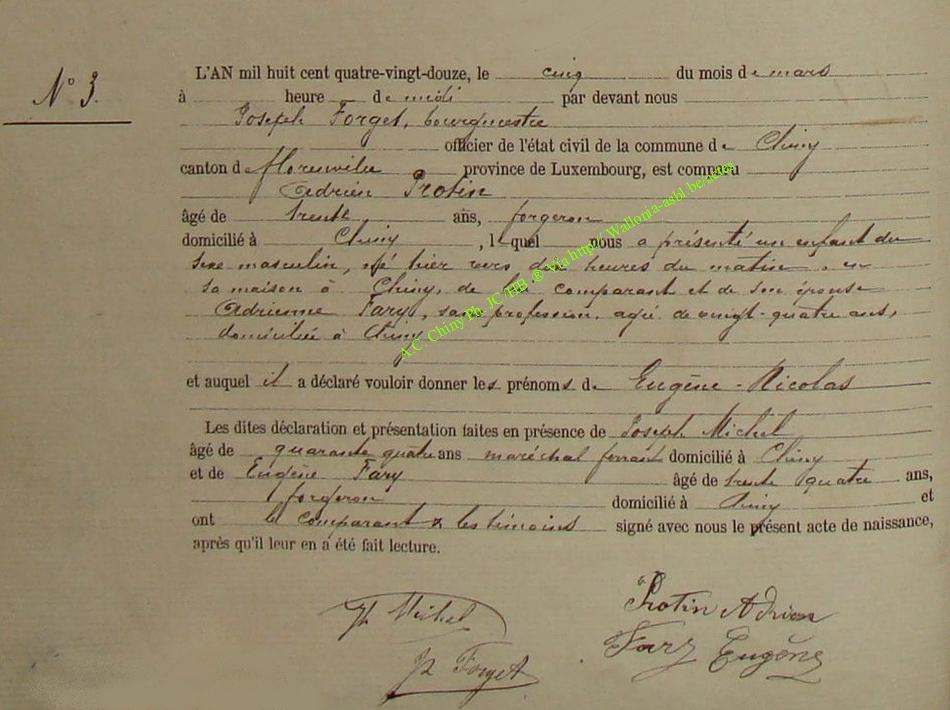 N° 3.
L'AN mil huit cent quatre-vingt-douze, le cinq du mois de mars
à heure de midi par devant nous
Joseph Forget, bourgmestre
officier de l'état civil de la commune de Chiny
canton de florenville province de Luxembourg, est comparu
Adrien Protin
âgé de trente ans, forgeron
domicilié à Chiny, lequel nous a présenté un enfant du
sexe masculin, né hier vers dix heures du matin, en
sa maison à Chiny, de lui comparant et de son épouse
Adrienne Fary, sans profession, agée de vingt-quatre ans,
domiciliée à Chiny
et auquel il a déclaré vouloir donner les prénoms de Eugène-Nicolas
Les dites déclaration et présentation faites en présence de Joseph Michel
âgé de quarante quatre ans maréchal ferrant domicilié à Chiny
et de Eugène Fary âgé de trente quatre ans,
forgeron domicilié à Chiny et
ont le comparant & les témoins signé avec nous le présent acte de naissance,
après qu'il leur en a été fait lecture.
Jh Michel Protin Adrien
Jh Forget Fary Eugène
A.C. Chiny Ph. JC /HB .@ Via http// Wallonia-asbl be/actes